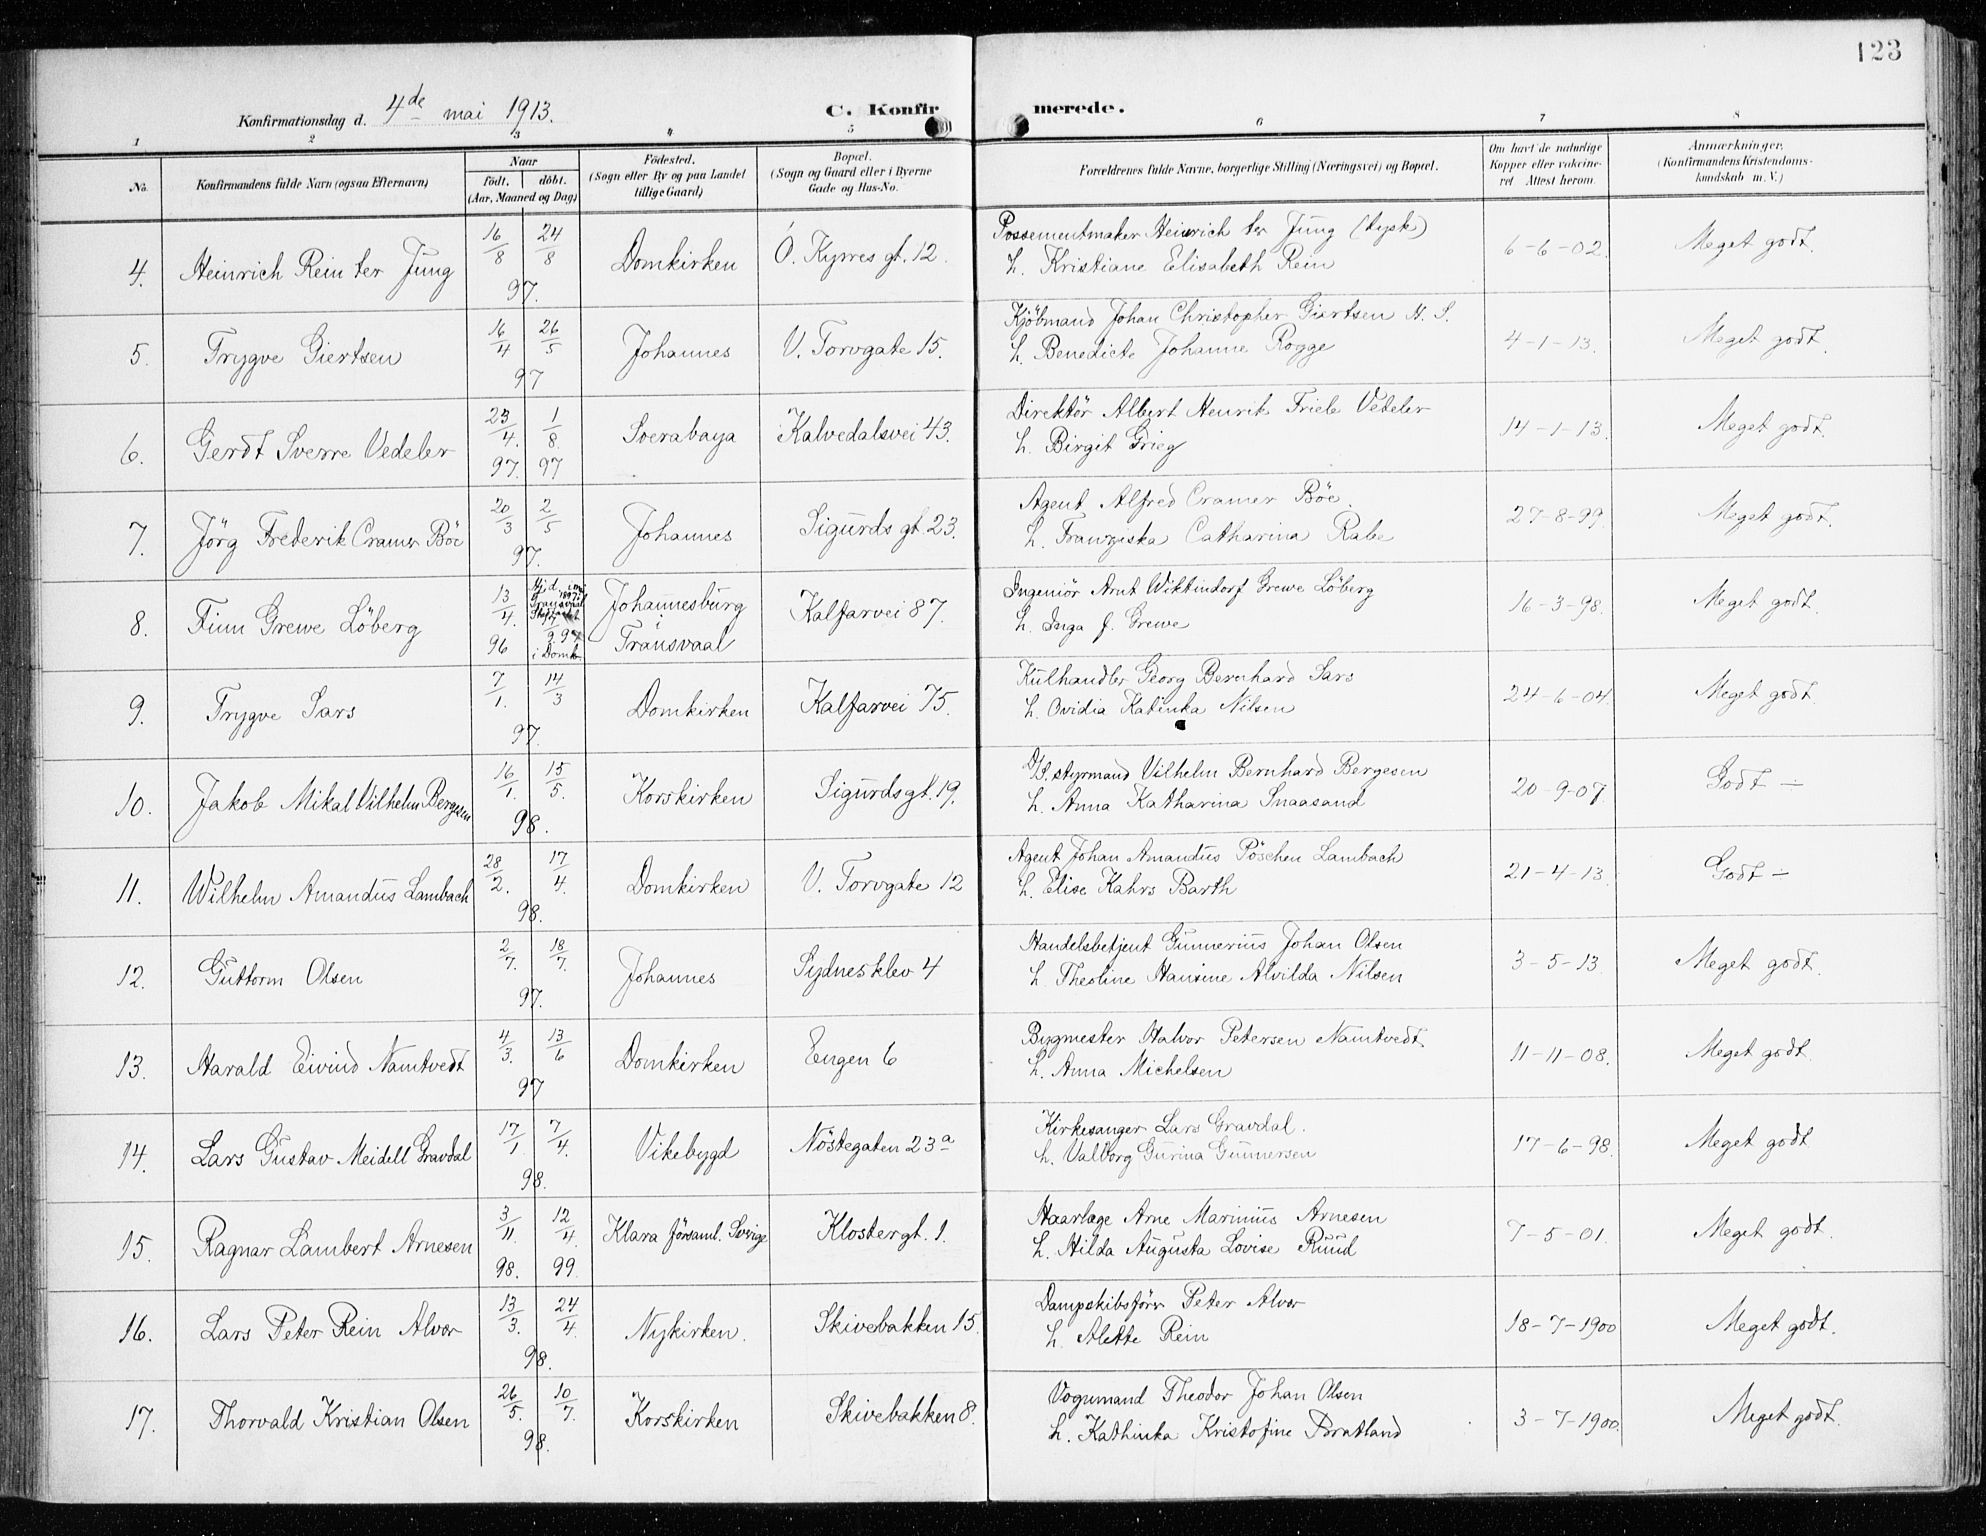 123
Konfirmationsdag d. 4de mai 1913.
C. Konfirmerede.
1 2 3 4 5 6 7 8
No. Konfirmandens fulde Navn (ogsaa Efternavn) Naar födt. döbt. (Aar, Maaned og Dag) Födested. (Sogn eller By og paa Landet tillige Gaard) Bopæl. (Sogn og Gaard eller i Byerne Gade og Hus-No. Forældrenes fulde Navne, borgerlige Stilling (Næringsvei) og Bopæl. Om havt de naturlige Kopper eller vakcineret Attest herom. Anmærkninger. (Konfirmandens Kristendomskundskab m. V.)
4. Heinrich Rein ter Jung 16/8 24/8 97. Domkirken Ö. Kyrres gt. 12. Possementmaker Heinrich ter Jung (tysk) 6-6-02. Meget godt.
h. Kristiane Elisabeth Rein
5. Trygve Giertsen 16/4 26/5 97 Johannes V. Torvgate 15. Kjöbmand Johan Christopher Giertsen H. S. 4-1-13. Meget godt.
h. Benedicte Johanne Rogge
6. Gerdt Sverre Vedeler 23/4. 97. 1/8. 97 Soerabaya Kalvedalsvei 43. Direktör Albert Henrik Friele Vedeler 14-1-13. Meget godt.
h. Birgit Grieg
7. Jörg Frederik Cramer Böe 20/3 2/5 97. Johannes Sigurds gt. 23. Agent Alfred Cramer Böe. 27-8-99. Meget godt.
h. Franziska Catharina Rabe
8. Finn Grewe Löberg 13/4. 96 i Domk. Johannesburg Transvaal Kalfarvei 87. Ingeniör Arnt Grewe Löberg 16-3-98. Meget godt.
h. Inga J. Grewe
9. Trygve Sars 7/1. 14/3 97. Domkirken Kalfarvei 75. Kulhandler Georg Bernhard Sars 24-6-04. Meget godt.
h. Ovidia Katinka Nilsen
10. Jakob Mikal Vilhelm Bergesen 16/1. 15/5. 98. Korskirken Sigurdsgt. 19. D/S. styrmand Vilhelm Bernhard Bergesen 20-9-07. Godt —
h. Anna Katharina Snaasand
11. Wilhelm Amandus Lambach 28/2. 17/4. 98. Domkirken V. Torvgate 12 Agent Johan Amandus Pöschen Lambach 21-4-13. Godt —
h. Elise Kahrs Barth
12. Guttorm Olsen 2/7. 18/7. 97. Johannes Sydnesklev 4 Handelsbetjent Gunnerius Johan Olsen 3-5-13. Meget godt.
h. Theoline Hansine Alvilda Nilsen
13. Harald Eivind Namtvedt 4/3. 13/6 97 Domkirken Engen 6 Bygmester Halvor Petersen Namtvedt 11-11-08. Meget godt.
h. Anna Michelsen
14. Lars Gustav Meidell Gravdal 17/1. 7/4. 98. Vikebygd Nöstegaten 23a Kirkesanger Lars Gravdal. 17-6-98. Meget godt
h. Valborg Gurina Gunnersen
15. Ragnar Lambert Arnesen 3/11. 98. 12/4. 99. Klara församl. Sverige Klostergt. 1. Haarlæge Arne Marinius Arnesen 7-5-01. Meget godt.
h. Hilda Augusta Lovise Ruud
16. Lars Peter Rein Alver 13/3. 24/4. 98. Nykirken. Skivebakken 15. Dampskibsförer Peter Alver 18-7-1900 Meget godt.
h. Alette Rein
17. Thorvald Kristian Olsen 26/5. 10/7. 98. Korskirken Skivebakken 8. Vognmand Theodor Johan Olsen 3-7-1900. Meget godt.
h. Kathinka Kristofine Bratland